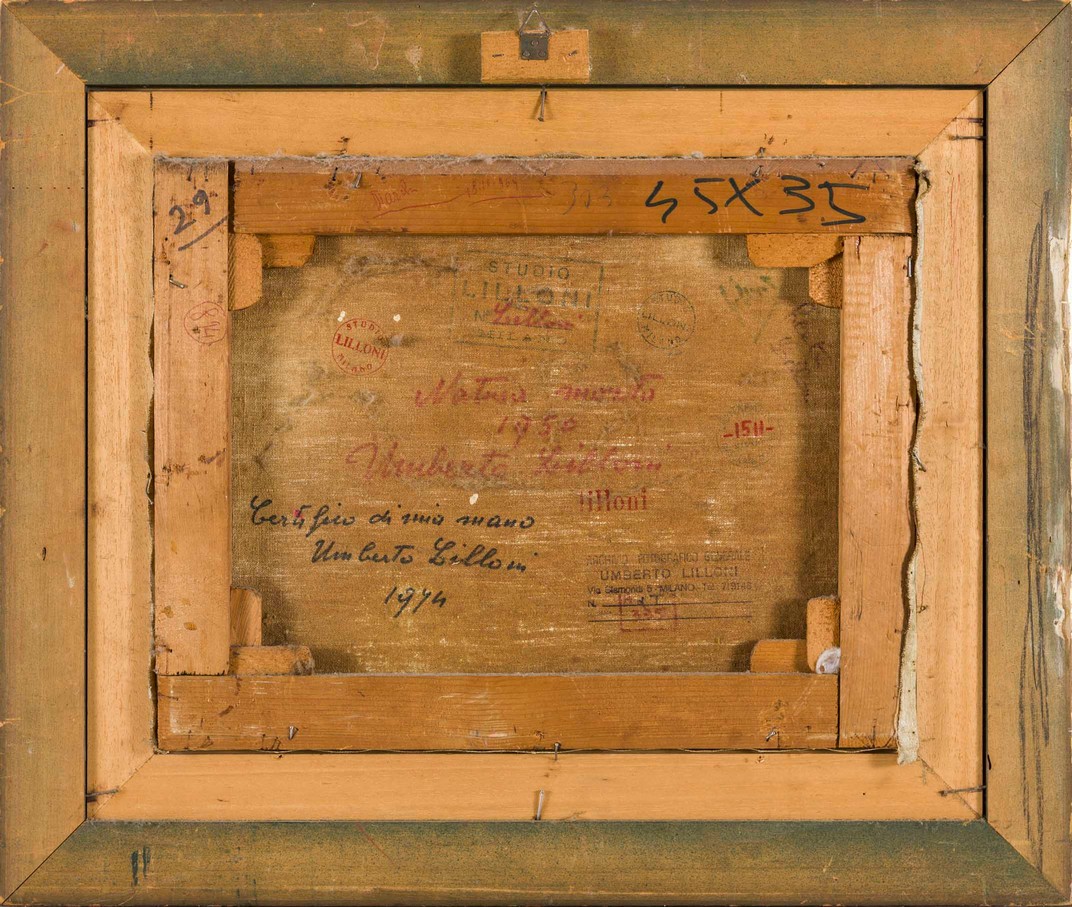 45X35
29
313
STUDIO
LILLONI
N. Lilloni
MILANO
STUDIO
LILLONI
MILANO
STUDIO
LILLONI
MILANO
Natura morta
1950
-1511-
Umberto Lilloni
lilloni
Certifico di mia mano
Umberto Lilloni
1974
ARCHIVIO FOTOGRAFICO GENERALE
UMBERTO LILLONI
Via Sismondi 6 - MILANO - Tel.
N.
335